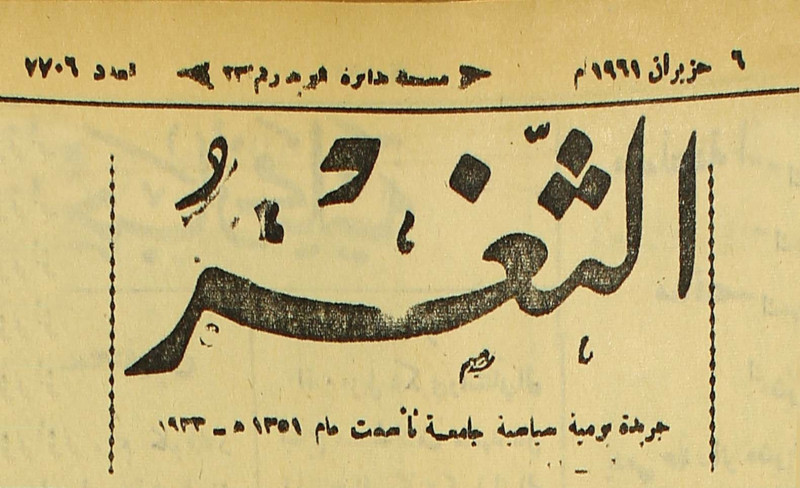 ٦ حزيران ١٩٦١م مسجلة بدائرة البريد رقم ٢٣ العدد ٧٧٠٦
الثّغر
جريدة يومية سياسية جامعة تأسست عام ١٣٥١ ه ـ ١٩٣٣